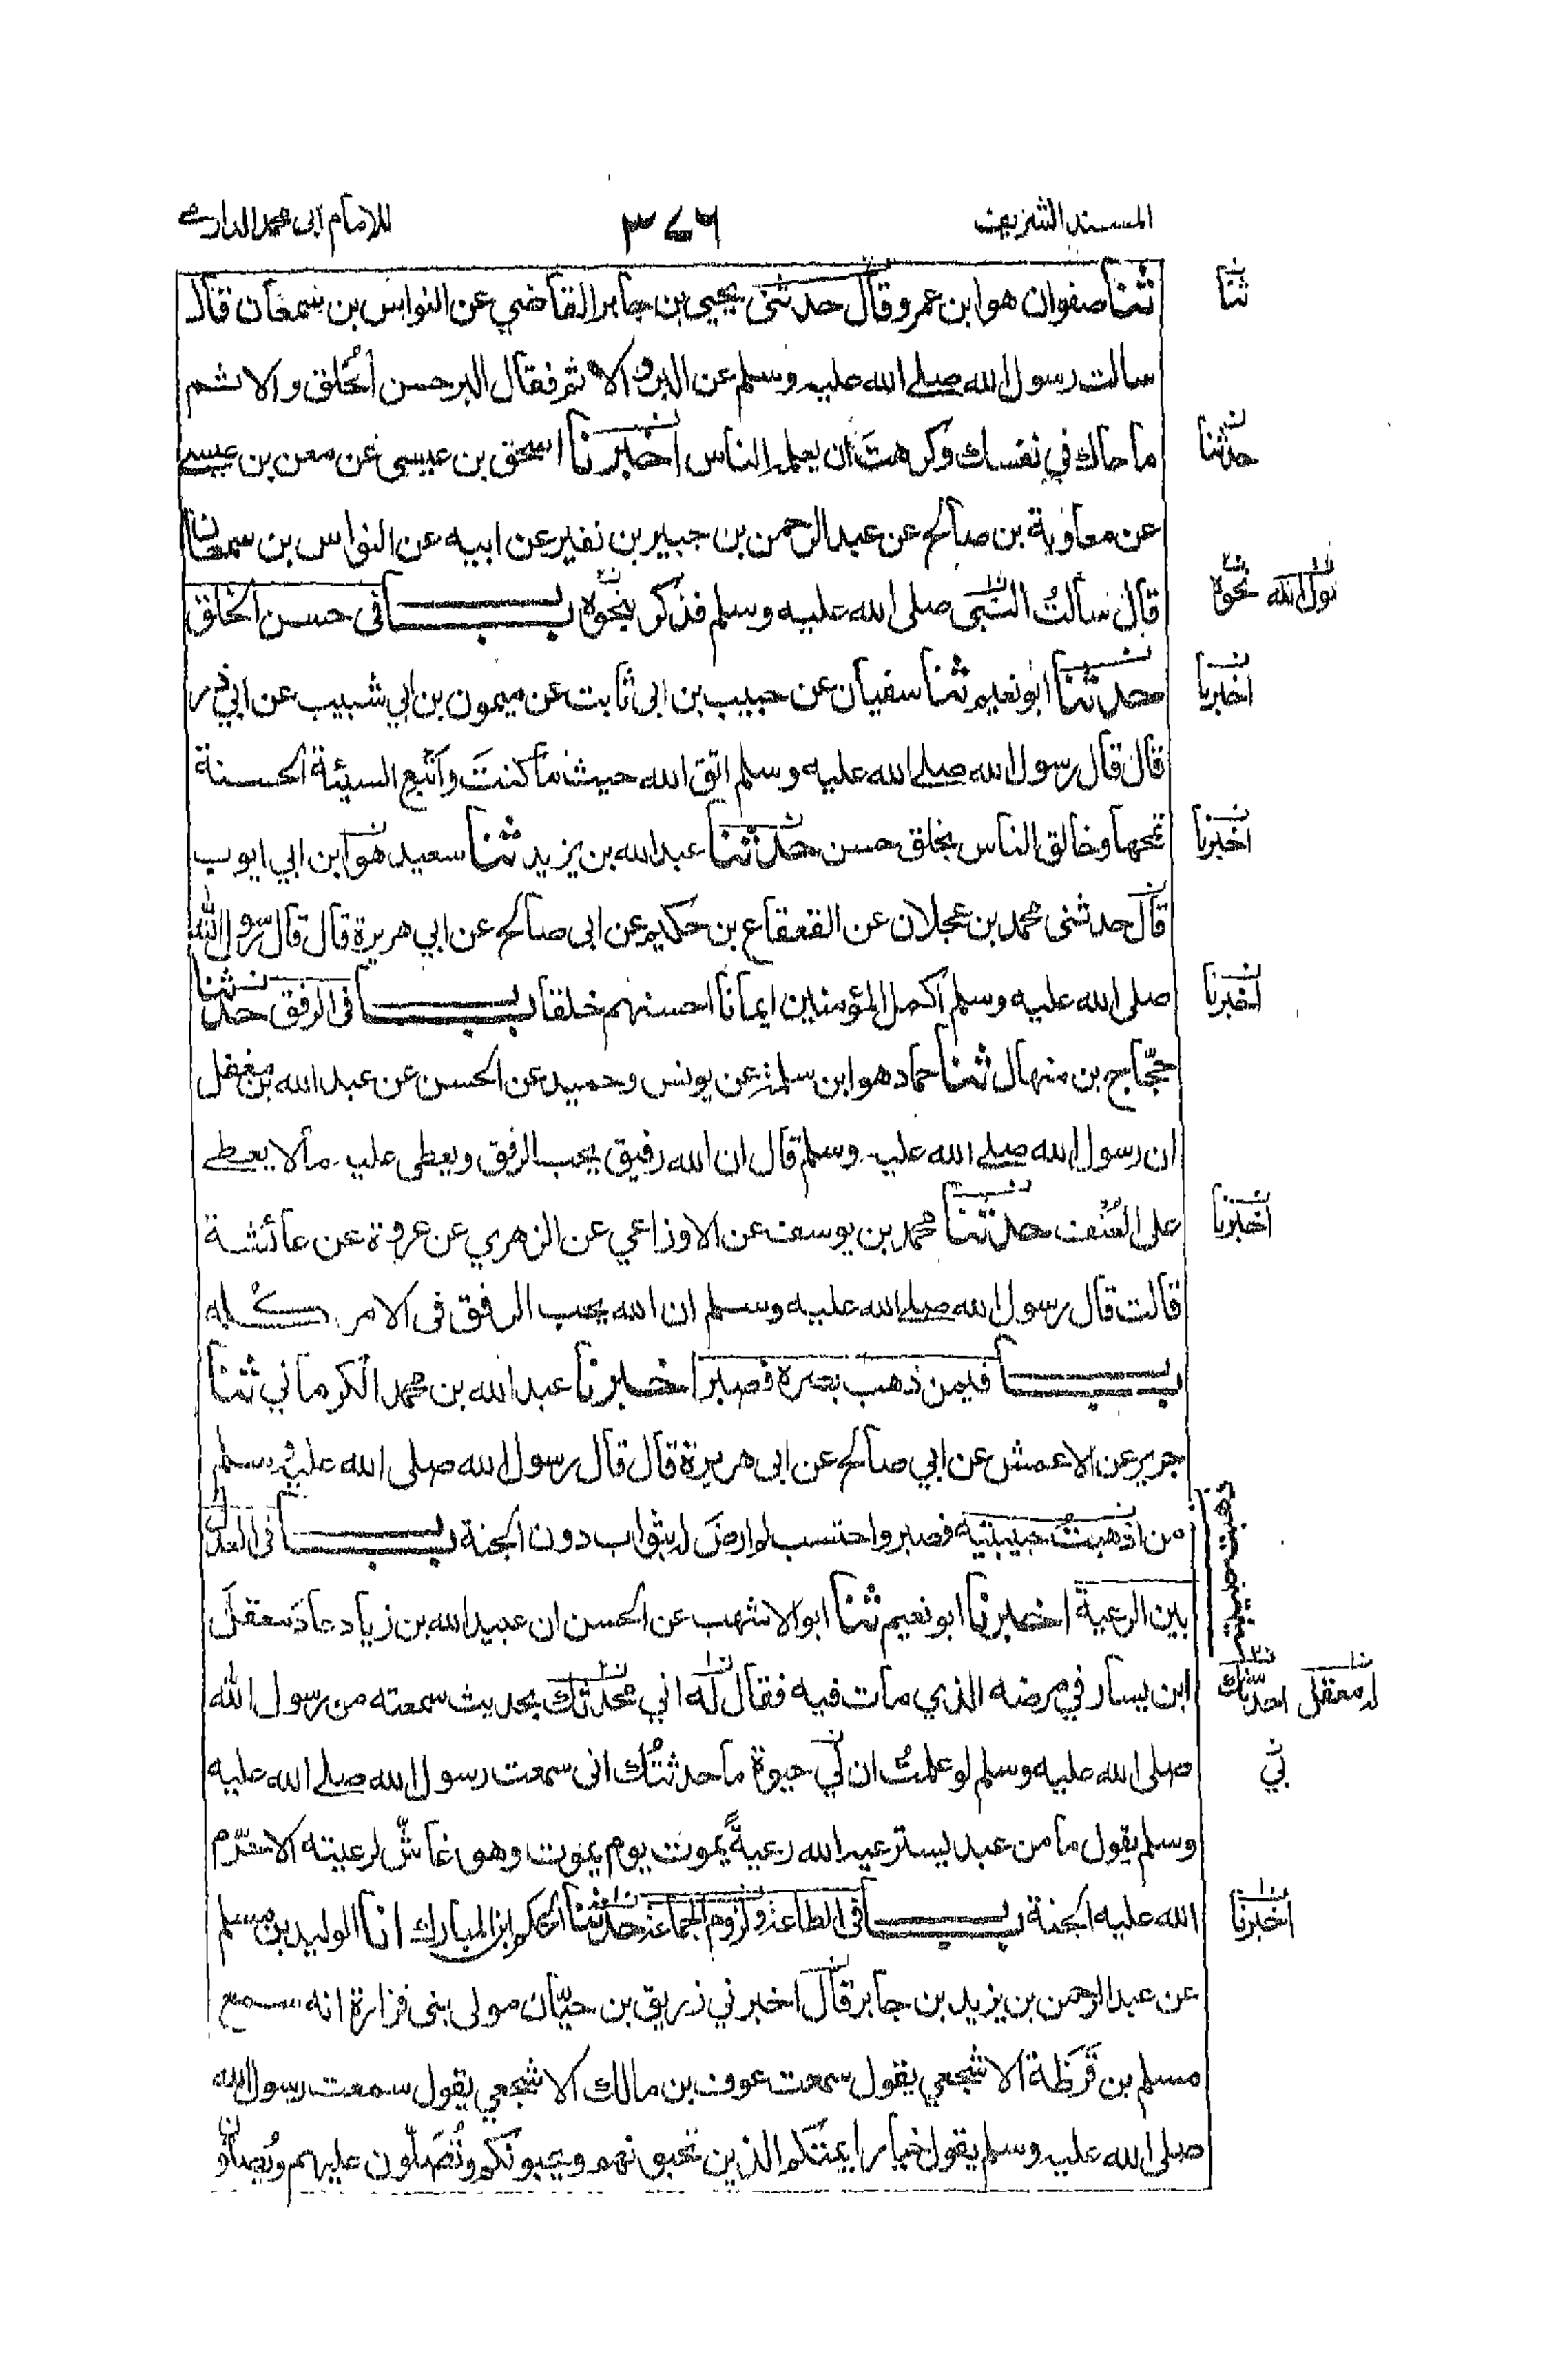 المسند الشريف ٣٧٦ للامام ابى محمد الدارمے
ثنا صفوان هو ابن عمرو قال حدثنى يحيى بن جابر القاضي عن النواس بن سمعان قال
ثنا
سالت رسول الله صلے الله عليه وسلم عن البر والاثم فقال البر حسن الخُلق والاثم
ما حاك في نفسك وكرهتَ ان يعلمه الناس اخبرنا اسحق بن عيسى عن معن بن عيسے
حدثنا
عن معاوية بن صالح عن عبد الرحمن بن جبير بن نفير عن ابيه عن النواس بن سمعان
قال سالتُ النبى صلى الله عليه وسلم فذكر بنحوه باب فى حسن الخلق
نحوه
حدثنا ابو نعيم ثنا سفيان عن حبيب بن ابى ثابت عن ميمون بن ابي شبيب عن ابي ذر
اخبرنا
قال قال رسول الله صلے الله عليه وسلم اتق الله حيث ما كنتَ واتبع السيئة الحسنة
تمحها وخالق الناس بخلق حسن حدثنا عبد الله بن يزيد ثنا سعيد هو ابن ابي ايوب
اخبرنا
قال حدثنى محمد بن عجلان عن القعقاع بن حكيم عن ابى صالح عن ابي هريرة قال قال رسول الله
صلى الله عليه وسلم اكمل المؤمنين ايمانا احسنهم خلقا باب فى الرفق حدثنا
اخبرنا
حجّاج بن منهال ثنا حماد هو ابن سلمة عن يونس وحميد عن الحسن عن عبد الله بن مغفل
ان رسول الله صلے الله عليه وسلم قال ان الله رفيق يحب الرفق ويعطى عليه ما لا يعطے
على العُنْف حدثنا محمد بن يوسف عن الاوزاعي عن الزهري عن عروة عن عائشة
اخبرنا
قالت قال رسول الله صلے الله عليه وسلم ان الله يحب الرفق فى الامر كله
باب فيمن ذهب بصره فصبر اخبرنا عبد الله بن محمد الكرماني ثنا
جرير عن الاعمش عن ابي صالح عن ابى هريرة قال قال رسول الله صلى الله عليه وسلم
من اذهبتُ حبيبتيه فصبر واحتسب لم ارضَ له بثواب دون الجنة باب فى العدل
بين الرعية اخبرنا ابو نعيم ثنا ابو الاشهب عن الحسن ان عبيد الله بن زياد عاد معقلَ
ابن يسار في مرضه الذي مات فيه فقال له اني محدثك بحديث سمعته من رسول الله
له معقل احدثك
صلى الله عليه وسلم لو علمتُ ان لي حيوة ما حدثتُك انى سمعت رسول الله صلے الله عليه
بي
وسلم يقول ما من عبد يسترعيه الله رعيةً يموت يوم يموت وهو غاشّ لرعيته الا حرّم
الله عليه الجنة باب فى الطاعة ولزوم الجماعة حدثنا الحكم ابن المبارك انا الوليد بن مسلم
اخبرنا
عن عبد الرحمن بن يزيد بن جابر قال اخبرني زريق بن حيّان مولى بنى فزارة انه سمع
مسلم بن قَرَظة الاشجعي يقول سمعت عوف بن مالك الاشجعي يقول سمعت رسول الله
صلى الله عليه وسلم يقول خيار ايمتكم الذين تحبونهم ويحبونكم وتُصَلّون عليهم ويُصلون